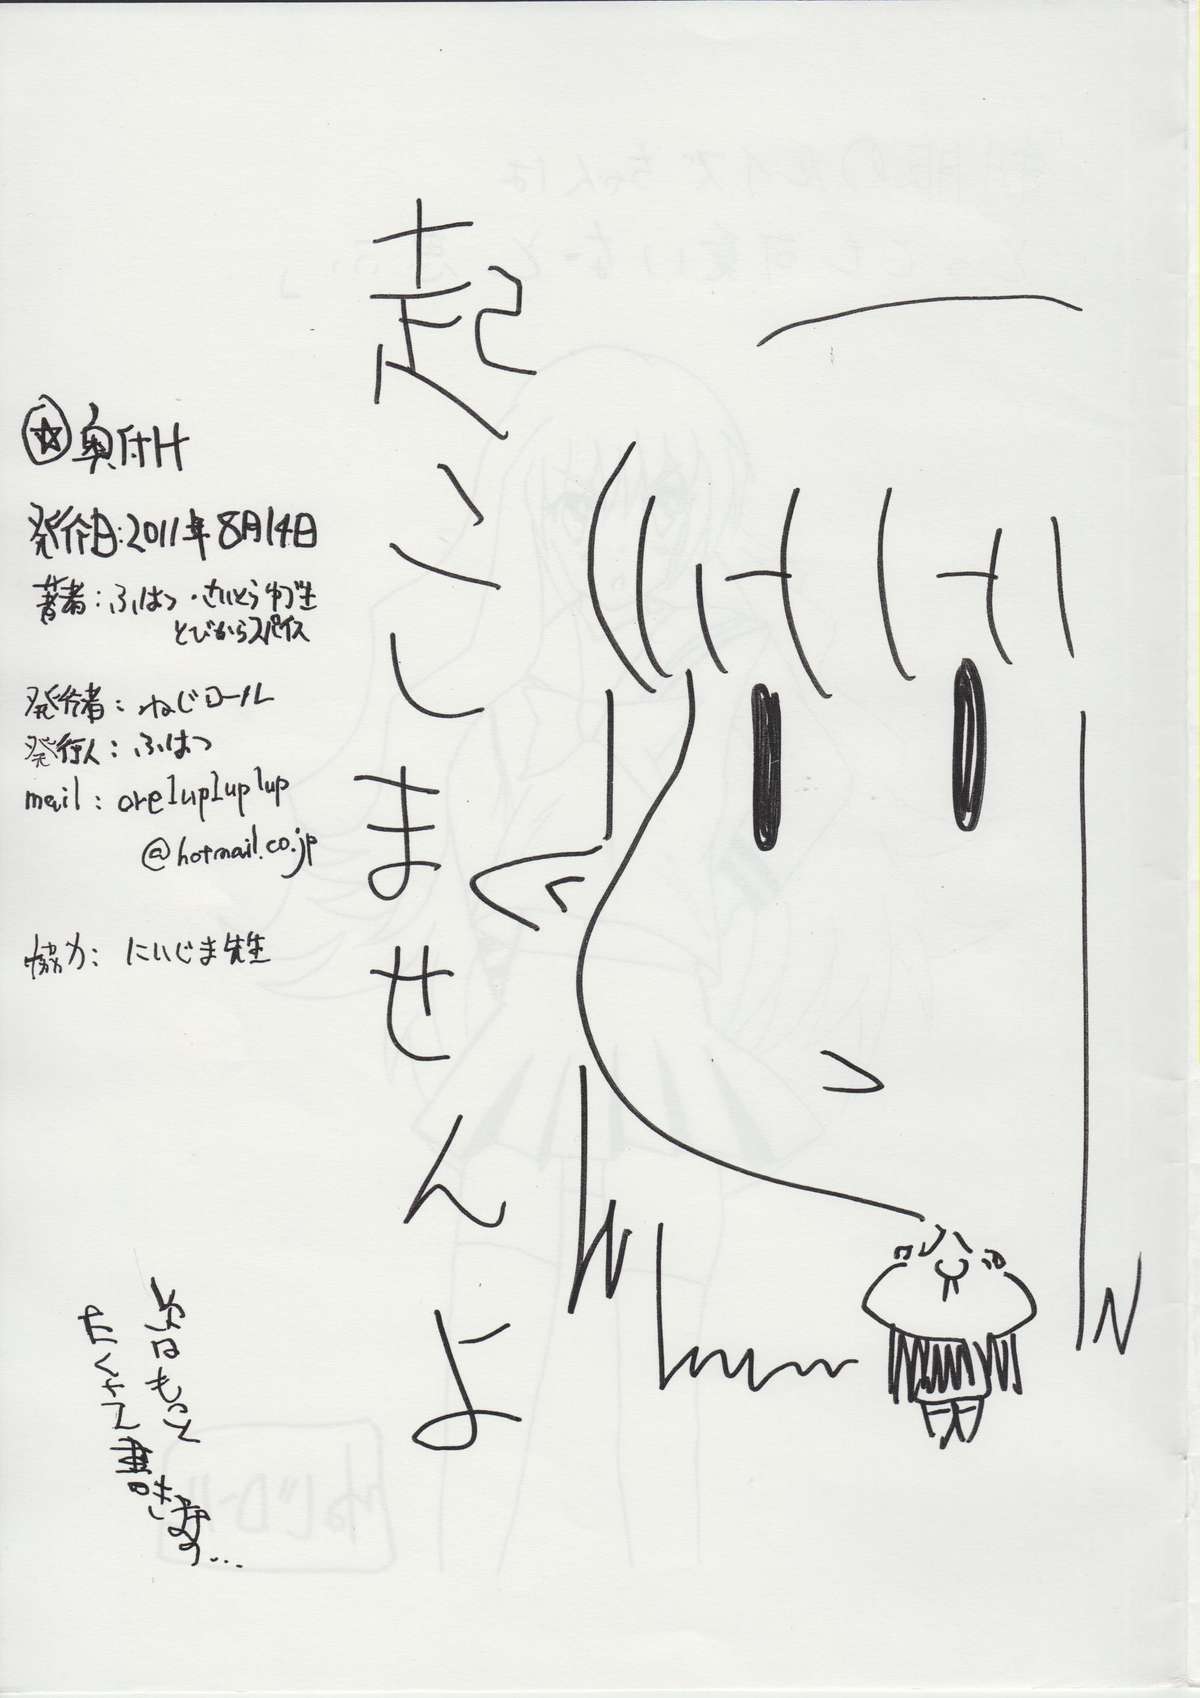 起こしませんよ
奥付け
発行日:2011年8月14日
著者:ふはつ・さいとう
とびからスパイス
発行者:ねじロール
発行人:ふはつ
mail:ore1up1up1up
@hotmail.co.jp
協力:にいじま先生
次はもっと
たくさん書きます…
ねじロール